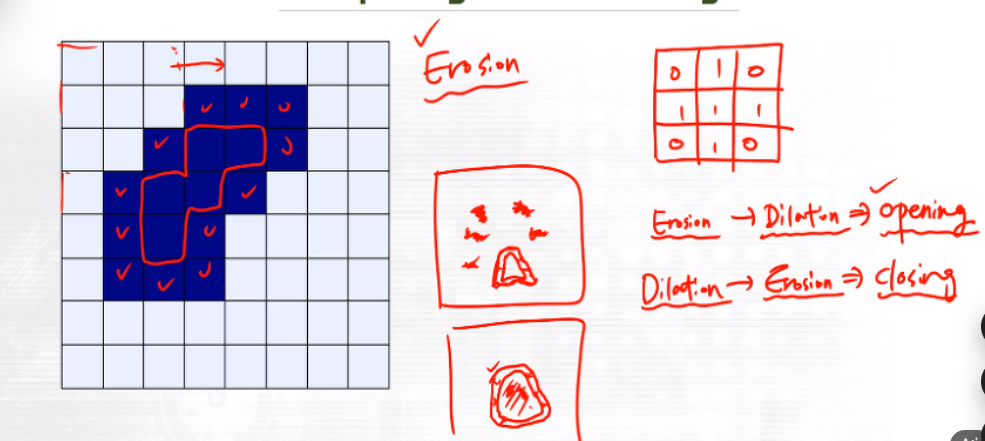 Erosion
0 1 0
1 1 1
0 1 0
Erosion → Dilation ⇒ opening
Dilation → Erosion ⇒ closing